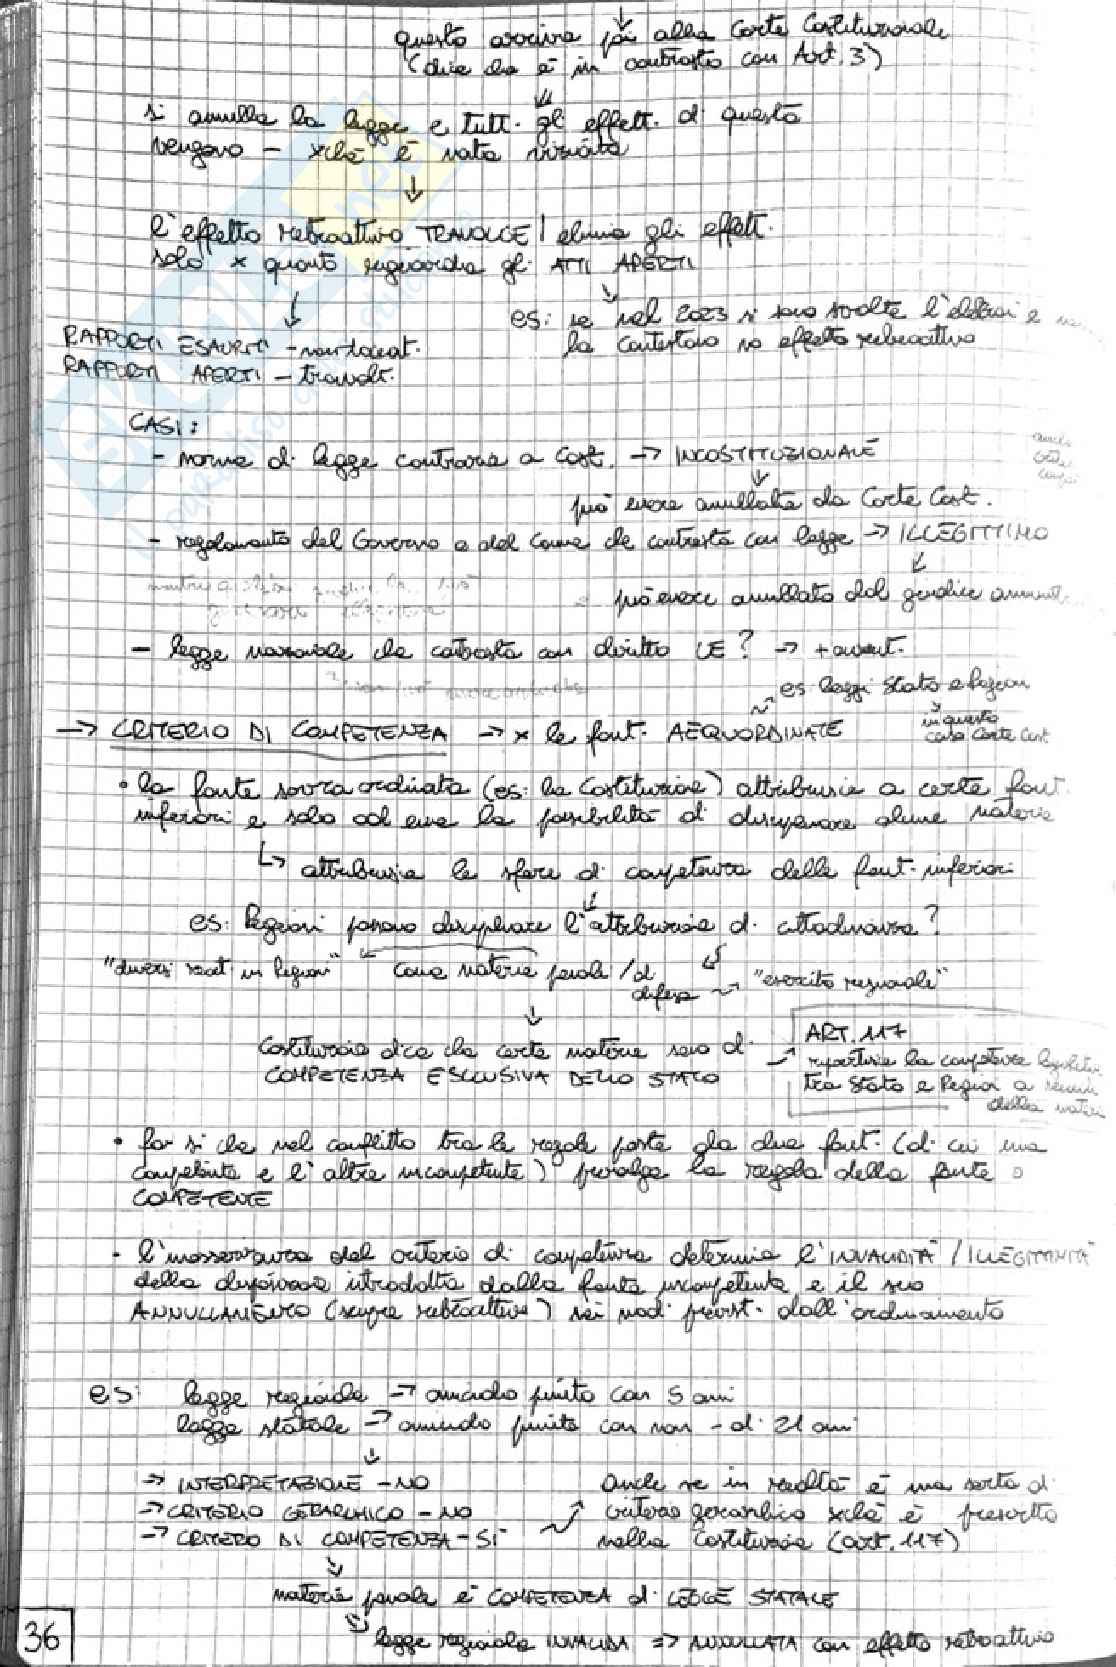 questo arriva poi alla Corte Costituzionale
(dice che è in contrasto con Art. 3)
↓
si annulla la legge e tutt. gl effett. d. questa
vengono - xchè è nata viziata
↓
l'effetto retroattivo TRAVOLGE / elimina gli effett.
solo x quanto riguarda gl. ATTI APERTI
es: se nel 2023 si sono svolte l'elezioni e
la contestano no effetto retroattivo
RAPPORTI ESAURITI - non toccat.
RAPPORTI APERTI - travolt.
CASI:
- norma d. legge contraria a Cost. → INCOSTITUZIONALE
↓
può essere annullata da Corte Cost.
- regolamento del Governo o del Comune che contrasta con legge → ILLEGITTIMO
↓
può essere annullato dal giudice amminist
- legge nazionale che contrasta con diritto UE? → + avant.
es: leggi Stato e Regioni
→ CRITERIO DI COMPETENZA → x le font. AEQUORDINATE
in questo
caso Corte Cost.
• la fonte sovraordinata (es: la Costituzione) attribuisce a certe font.
inferiori e solo ad esse la possibilità d. disciplinare alcune materie
↳ attribuisce le sfere d. competenza delle font. inferiori
↓
es: Regioni possono disciplinare l'attribuzione d. cittadinanza?
"diversi reat. in Regioni" ← come materie penale / d.
difesa → "esercito regionale"
↓
Costituzione dice che certe materie sono d.
COMPETENZA ESCLUSIVA DELLO STATO
ART. 117
ripartisce la competenza legislativa
tra Stato e Regioni a seconda
della materia
• far sì che nel conflitto tra le regole poste da due font. (d. cui una
competente e l'altra incompetente) prevalga la regola della fonte
COMPETENTE
• l'inosservanza del criterio d. competenza determina l'INVALIDITÀ / ILLEGITTIMITÀ
della disposizione introdotta dalla fonte incompetente e il suo
ANNULLAMENTO (sempre retroattivo) nei mod. previst. dall'ordinamento
es: legge regionale → omicidio punito con 5 anni
legge statale → omicidio punito con non - d. 21 anni
↓
→ INTERPRETAZIONE - NO
→ CRITERIO GERARCHICO - NO
→ CRITERIO DI COMPETENZA - SÌ
anche se in realtà è una sorta d.
criterio gerarchico xchè è prescritto
nella Costituzione (art. 117)
↓
materia penale è COMPETENZA d. LEGGE STATALE
legge regionale INVALIDA ⇒ ANNULLATA con effetto retroattivo
36